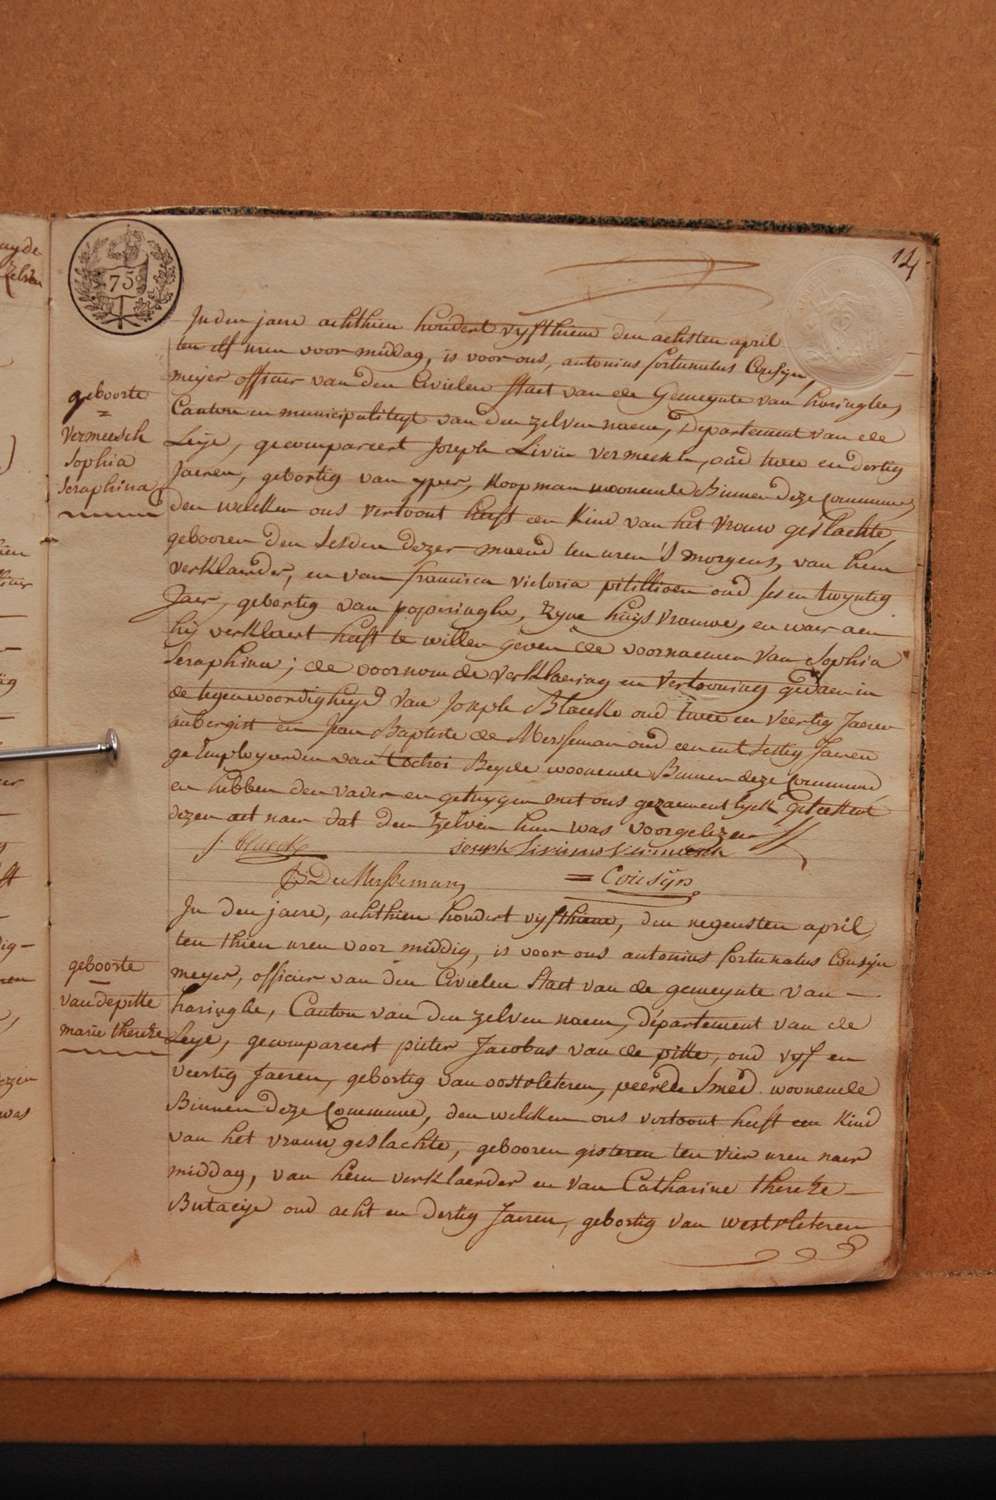 14
75
In den jaere achthien hondert vyfthiene den achsten april
ten elf uren voor middag, is voor ons, antonius fortunatus Cousyn,
meyer officier van den Civielen staet van de Gemeynte van haringhe,
Canton en municipaliteyt van den zelven naem, Departement van de
Leije, gecompareert Joseph Livin Vermeesch, oud twee en dertig
Jaeren, gebortig van yper, Koopman woonende Binnen deze Commune,
den welcken ons vertoont heeft een Kind van het Vrouw geslachte,
gebooren den sesden dezer maend ten uren 's morgens, van hem
verklaerder, en van francisca victoria pitillioen oud ses en twyntig
Jaer, gebortig van poperinghe, zyne huijs vrouwe, en waer aen
hij verklaert heeft te willen geven de voornaemen van Sophia
Seraphina; de voornomde verklaering en vertooning gedaen in
de tegenwoordigheyd van Joseph Blaecke oud twee en veertig Jaeren
aubergist en Jean Baptiste de Messeman oud een ent sestig Jaeren
geEmployeerden van Beyde woonende Binnen deze Commune
en hebben den vader en getuygen met ons gezaementlyck geteekent
dezen act naer dat den zelven hun was voorgelezen
J. blaecke Joseph Livinus Vermeesch
JB DeMesseman = Cousÿn
geboorte
=
vermeesch
Sophia
Seraphina
In den jaere, achthien hondert vyfthiene, den negensten april,
ten thien uren voor middig, is voor ons antonius fortunatus Cousyn
meyer, officier van den Civielen staet van de gemeynte van
haringhe, Canton van den zelven naem, département van de
Leye, gecompareert pieter Jacobus van de pitte, oud vyf en
veertig Jaeren, gebortig van oostvleteren, peerde smed woonende
Binnen deze Commune, den welcken ons vertoont heeft een Kind
van het vrouw geslachte, gebooren gisteren ten vier uren naer
middag, van hem verklaerder en van Catharine thereze
Butaeije oud acht en dertig Jaeren, gebortig van westvleteren
geboorte
vandepitte
marie thereze